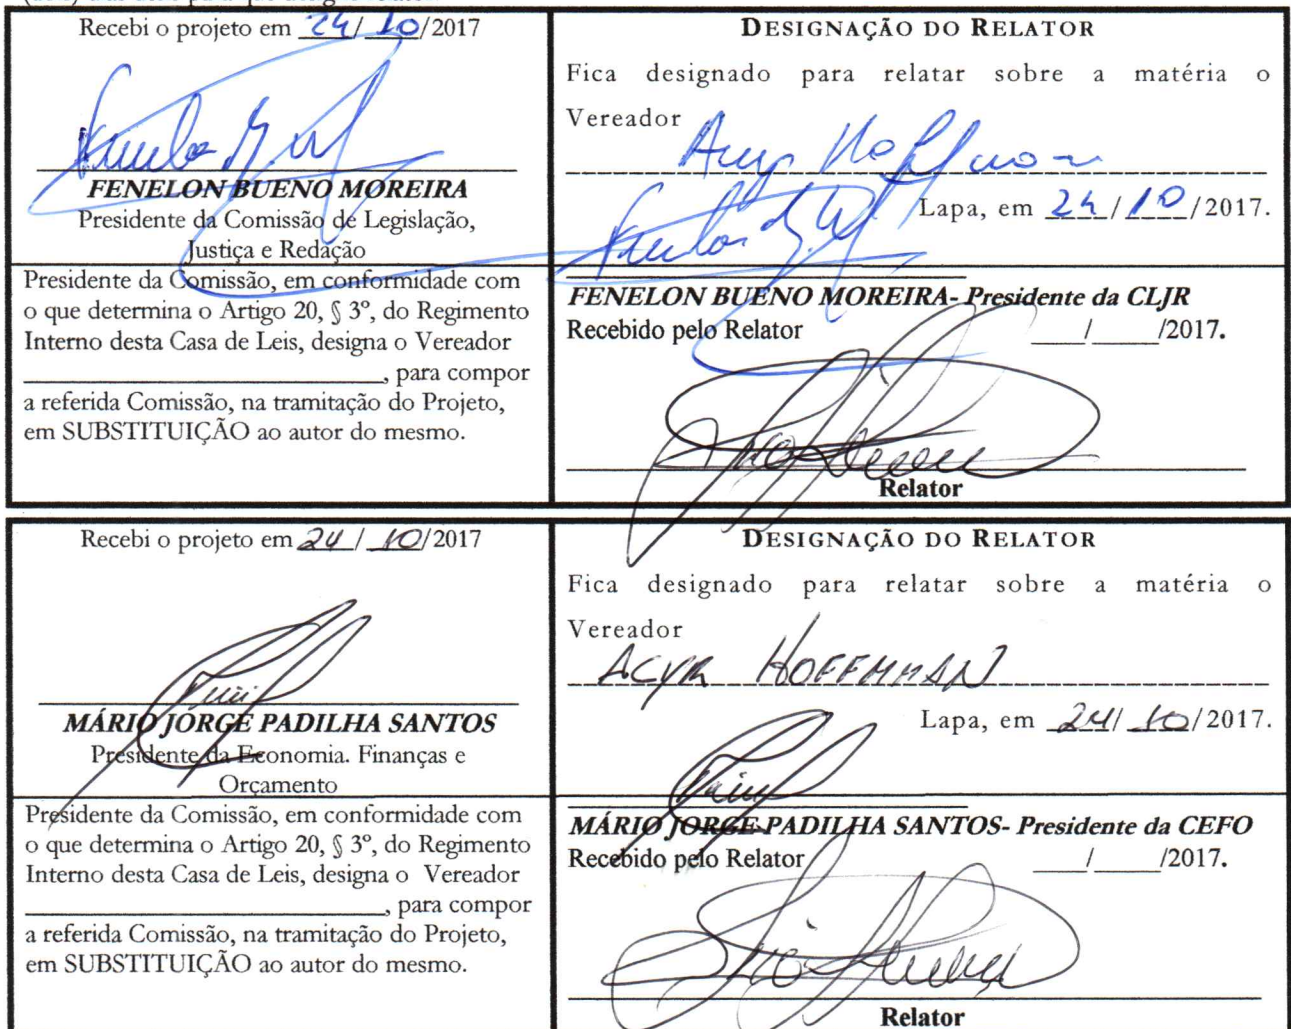 Recebi o projeto em 24/10/2017
FENELON BUENO MOREIRA
Presidente da Comissão de Legislação,
Justiça e Redação
Presidente da Comissão, em conformidade com
o que determina o Artigo 20, § 3º, do Regimento
Interno desta Casa de Leis, designa o Vereador
____________________, para compor
a referida Comissão, na tramitação do Projeto,
em SUBSTITUIÇÃO ao autor do mesmo.
DESIGNAÇÃO DO RELATOR
Fica designado para relatar sobre a matéria o
Vereador
Hoffman
Lapa, em 24/10/2017.
FENELON BUENO MOREIRA- Presidente da CLJR
Recebido pelo Relator ____/_____/2017.
Relator
Recebi o projeto em 24/10/2017
MÁRIO JORGE PADILHA SANTOS
Presidente da Economia. Finanças e
Orçamento
Presidente da Comissão, em conformidade com
o que determina o Artigo 20, § 3º, do Regimento
Interno desta Casa de Leis, designa o Vereador
____________________, para compor
a referida Comissão, na tramitação do Projeto,
em SUBSTITUIÇÃO ao autor do mesmo.
DESIGNAÇÃO DO RELATOR
Fica designado para relatar sobre a matéria o
Vereador
ACYR HOFFMMAN
Lapa, em 24/10/2017.
MÁRIO JORGE PADILHA SANTOS- Presidente da CEFO
Recebido pelo Relator ____/_____/2017.
Relator